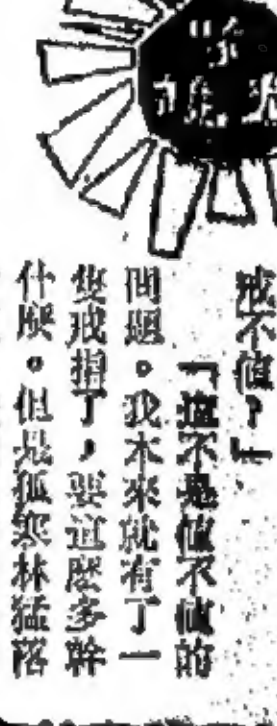 戒不值？」
「這不是值不值的
問題。我本來就有了一
隻戒指了，要這麼多幹
什麼。但是孤寒林猛落